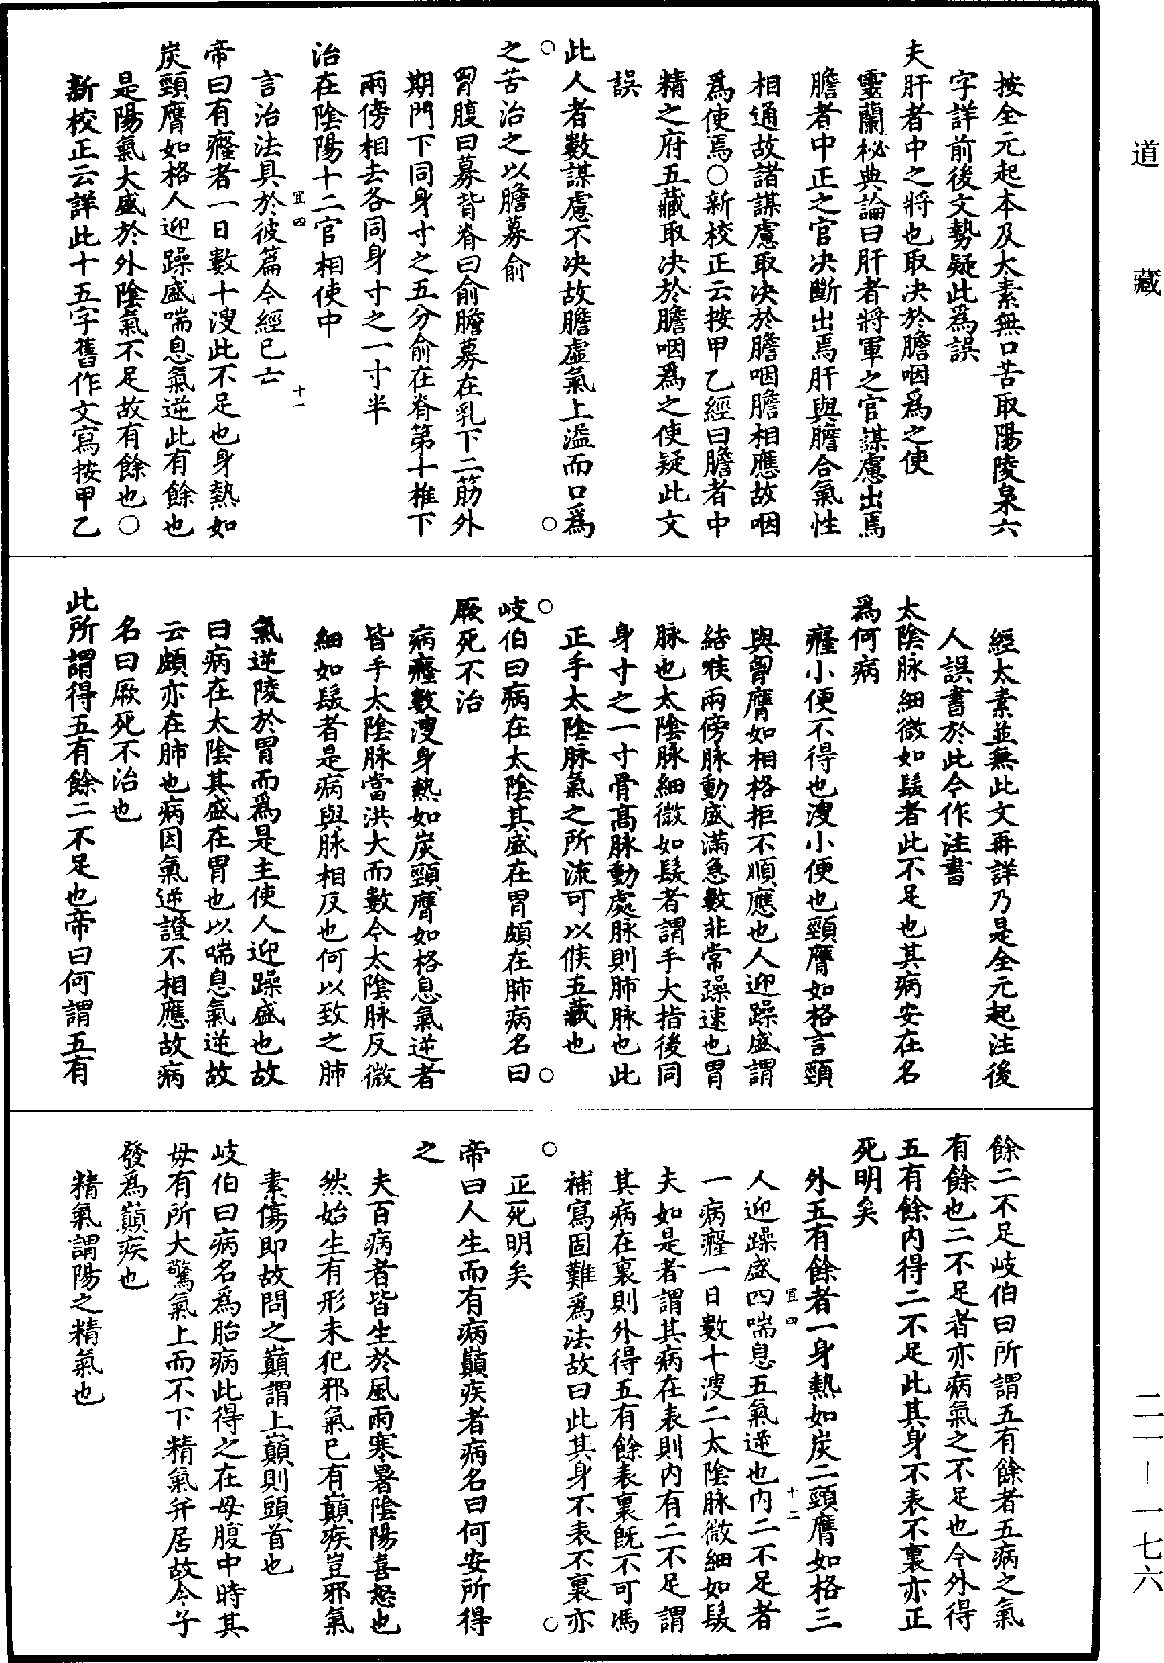 道藏
按全元起本及太素無口苦取陽陵泉六
字詳前後文勢疑此為誤
夫肝者中之將也取決於膽咽為之使
靈蘭秘典論曰肝者將軍之官謀慮出焉
膽者中正之官決斷出焉肝與膽合氣性
相通故諸謀慮取決於膽咽膽相應故咽
為使焉○新校正云按甲乙經曰膽者中
精之府五藏取決於膽咽為之使疑此文
誤
此人者數謀慮不決故膽虛氣上溢而口為
○　○
之苦治之以膽募俞
胷腹曰募背脊曰俞膽募在乳下二筋外
期門下同身寸之五分俞在脊第十椎下
兩傍相去各同身寸之一寸半
治在陰陽十二官相使中
宜四　十一
言治法具於彼篇今經已亡
帝曰有癃者一日數十溲此不足也身熱如
炭頸膺如格人迎躁盛喘息氣逆此有餘也
是陽氣大盛於外陰氣不足故有餘也○
新校正云詳此十五字舊作文寫按甲乙
經太素並無此文再詳乃是全元起注後
人誤書於此今作注書
太陰脉細微如髮者此不足也其病安在名
為何病
癃小便不得也溲小便也頸膺如格言頸
與胷膺如相格拒不順應也人迎躁盛謂
結喉兩傍脉動盛滿急數非常躁速也胃
脉也太陰脉細微如髮者謂手大指後同
身寸之一寸骨高脉動處脉則肺脉也此
正手太陰脉氣之所流可以候五藏也
○　○
岐伯曰病在太陰其盛在胃頗在肺病名曰
厥死不治
病癃數溲身熱如炭頸膺如格息氣逆者
皆手太陰脉當洪大而數今太陰脉反微
細如髮者是病與脉相反也何以致之肺
氣逆陵於胃而為是主使人迎躁盛也故
曰病在太陰其盛在胃也以喘息氣逆故
云頗亦在肺也病因氣逆證不相應故病
名曰厥死不治也
此所謂得五有餘二不足也帝曰何謂五有
餘二不足岐伯曰所謂五有餘者五病之氣
有餘也二不足者亦病氣之不足也今外得
五有餘內得二不足此其身不表不裏亦正
死明矣
外五有餘者一身熱如炭二頸膺如格三
宜四　十二
人迎躁盛四喘息五氣逆也內二不足者
一病癃一日數十溲二太陰脉微細如髮
夫如是者謂其病在表則內有二不足謂
其病在裏則外得五有餘表裏既不可馮
補寫固難為法故曰此其身不表不裏亦
○　○
正死明矣
帝曰人生而有病巔疾者病名曰何安所得
之
夫百病者皆生於風雨寒暑陰陽喜怒也
然始生有形未犯邪氣已有巔疾豈邪氣
素傷即故問之巔謂上巔則頭首也
岐伯曰病名為胎病此得之在母腹中時其
母有所大驚氣上而不下精氣并居故令子
發為巔疾也
精氣謂陽之精氣也
二一—一七六